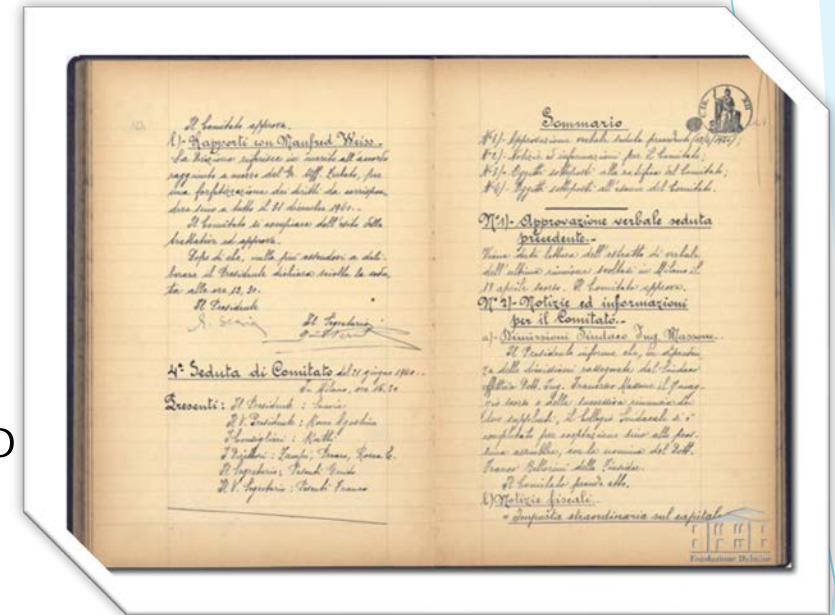 Il Comitato approva.
b)- Rapporti con Manfred Weiss.-
La Direzione riferisce in merito all'accordo
raggiunto a mezzo del G. Uff. per
una forfetizzazione dei diritti da corrispon-
dere sino a tutto il 31 dicembre 1940.-
Il Comitato si compiace dell'esito della
trattativa ed approva.
Dopo di che, nulla più essendovi a deli-
berare il Presidente dichiara sciolta la sedu-
ta alle ore 12,30.
Il Presidente
Il Segretario
4ª Seduta di Comitato del 21 giugno 1940.-
In Milano, ore 16.30
Presenti: Il Presidente:
Il V. Presidente: Rocca Agostino
I Consiglieri:
I Direttori: Rocca E.
Il Segretario: Guido
Il V. Segretario: Franco
Sommario
Nº1)- Approvazione verbale seduta precedente
Nº2)- Notizie ed informazioni per il Comitato;
Nº3)- Oggetti sottoposti alla ratifica del Comitato;
Nº4)- Oggetti sottoposti all'esame del Comitato.
Nº1)- Approvazione verbale seduta
precedente.-
Viene data lettura dell'estratto di verbale
dell'ultima riunione svoltasi in Milano il
aprile scorso. Il Comitato approva.
Nº2)- Notizie ed informazioni
per il Comitato.-
a)- Dimissioni Sindaco Ing. Massone.-
Il Presidente informa che, in dipenden-
za delle dimissioni rassegnate dal Sindaco
effettivo Dott. Ing. Francesco Massone il
scorso e della successiva rinuncia dei
due supplenti, il Collegio Sindacale si è
completato per cooptazione sino alla pros-
sima assemblea, con la nomina del Dott.
Franco Bellorini della Finsider.
Il Comitato prende atto.
b) Notizie fiscali.
= Imposta straordinaria sul capitale
Fondazione Dalmine
D